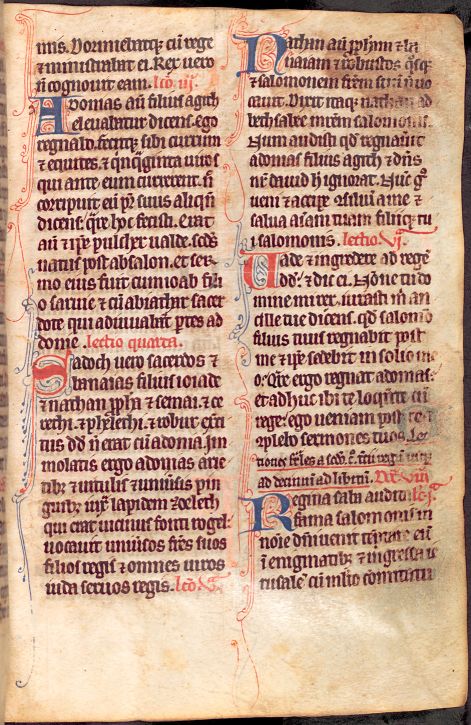 mis. Dormiebatq; cū rege
⁊ ministrabat ei. Rex uero
nō cognouit eam. lcō iij.
Adomas aū filius agith
eleuabatur dicens. ego
regnabo. fecitq; sibi currum
⁊ equites. ⁊ qnq̄ginta uiros
qui ante eum currerent. n̄
corripuit eū pr̄ suus aliqn̄
dicens. qr̄e hoc fecisti. Erat
aū ⁊ ip̄e pulcher ualde. scd̄s
natus post absalon. et ser
mo eius fuit cum ioab fili
o saruie ⁊ cū abiathar sacer
dote qui adiuuabāt ptes ad
donie. lectio quarta.
Sadoch uero sacerdos ⁊
banaias filius ioiade
⁊ nathan pph̄a ⁊ semai. ⁊ ce
rethi. ⁊ phelethi. ⁊ robur exerci
tus dd̄ n̄ erat cū adonia. Jm
molatis ergo adomas arie
tib; ⁊ uitulis ⁊ uniuersis pin
guib; iux̄ lapidem zoeleth
qui erat uicinus fonti rogel.
uocauit uniūsos frēs suos
filios regis ⁊ omnes uiros
iuda seruos regis. lcō v.
Nathan aū pph̄am ⁊ ba
naiam ⁊ robustos q̄sq;
⁊ salomonem frēm suū n̄ uo
cauit. Dixit itaq; nathan ad
bethsabee mr̄em salomonis.
Num audisti qd̄ regnauit
adomas filius agith ⁊ dn̄s
nr̄ dauid h̄ ignorat. Nūc g̊
ueni ⁊ accipe cōsiliū a me ⁊
salua aīam tuam filiiq; tu
i salomonis. lectio vi.
Uade ⁊ ingredere ad regē
dd̄. ⁊ dic ei. Nōne tu do
mine mi rex iurasti m̄ an
cille tue dicens. qd̄ salomō
filius tuus regnabit post
me ⁊ ip̄e sedebit in solio me
o. Qr̄e ergo regnat adomas.
et adhuc ibi te loquēte cū
rege. ego ueniam post te ⁊
cplebo sermones tuos.
ad libitū.
Regina saba audita
fama salomonis in
noīe dn̄i uenit temptare eū
in enigmatib; ⁊ ingressa ie
rusalē cū multo comitatu